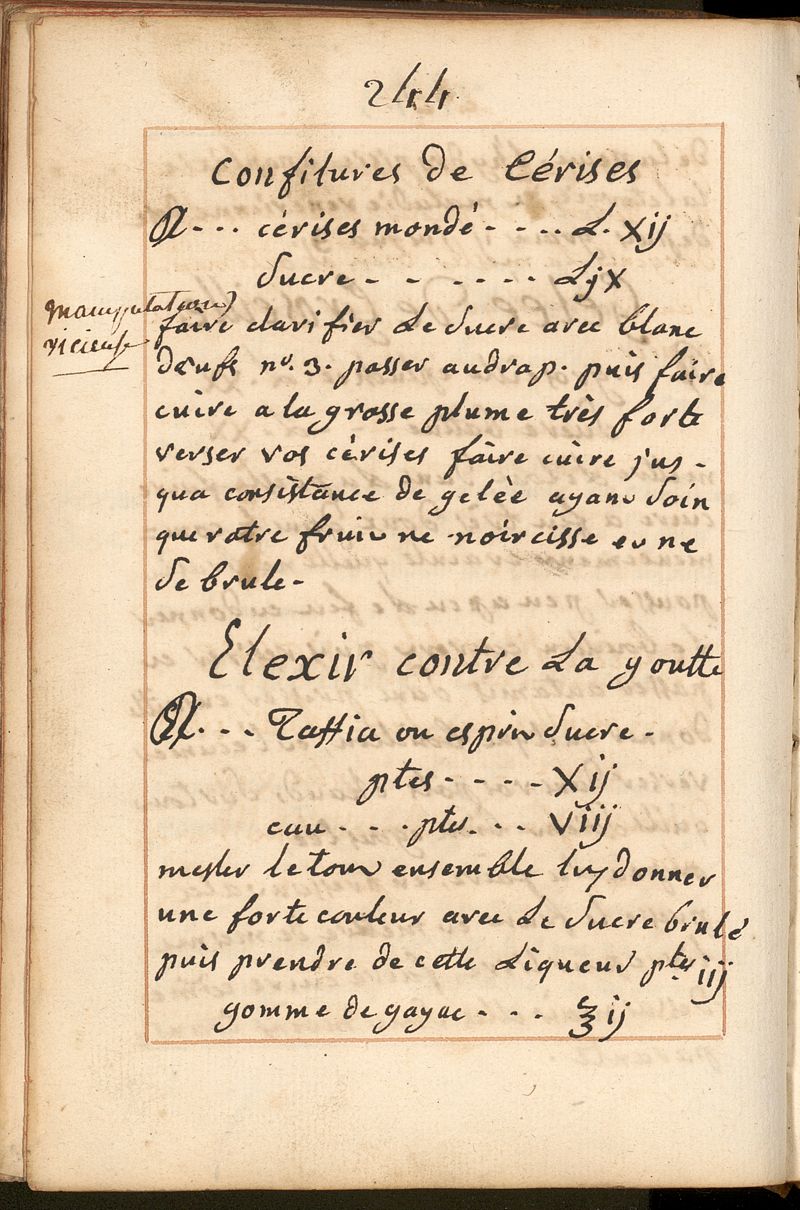 244
Confitures de Cérises
℞ - - - cérises mondé - - - .. L. xij
Sucre - - - - - - - L jx
manipulation
vicieuse
faire clarifier Le Sucre avec blanc
dœufs nº. 3. passer audrap. puis faire
cuire a la grosse plume très forte
verser vos cérises faire cuire jus -
qua consistance de gelèe ayant Soin
que votre fruit ne noircisse et ne
Se brule -
Elexir contre La goutte
℞ . - - - Taffia ou esprit Sucre -
ptes - - - - - Xij
eau - - . ptes. - - Viij
mesler le tout ensemble luy donner
une forte couleur avec Le Sucre brulé
puis prendre de cette Liqueur ptes iij
gomme de gayac - - - ℥ ij